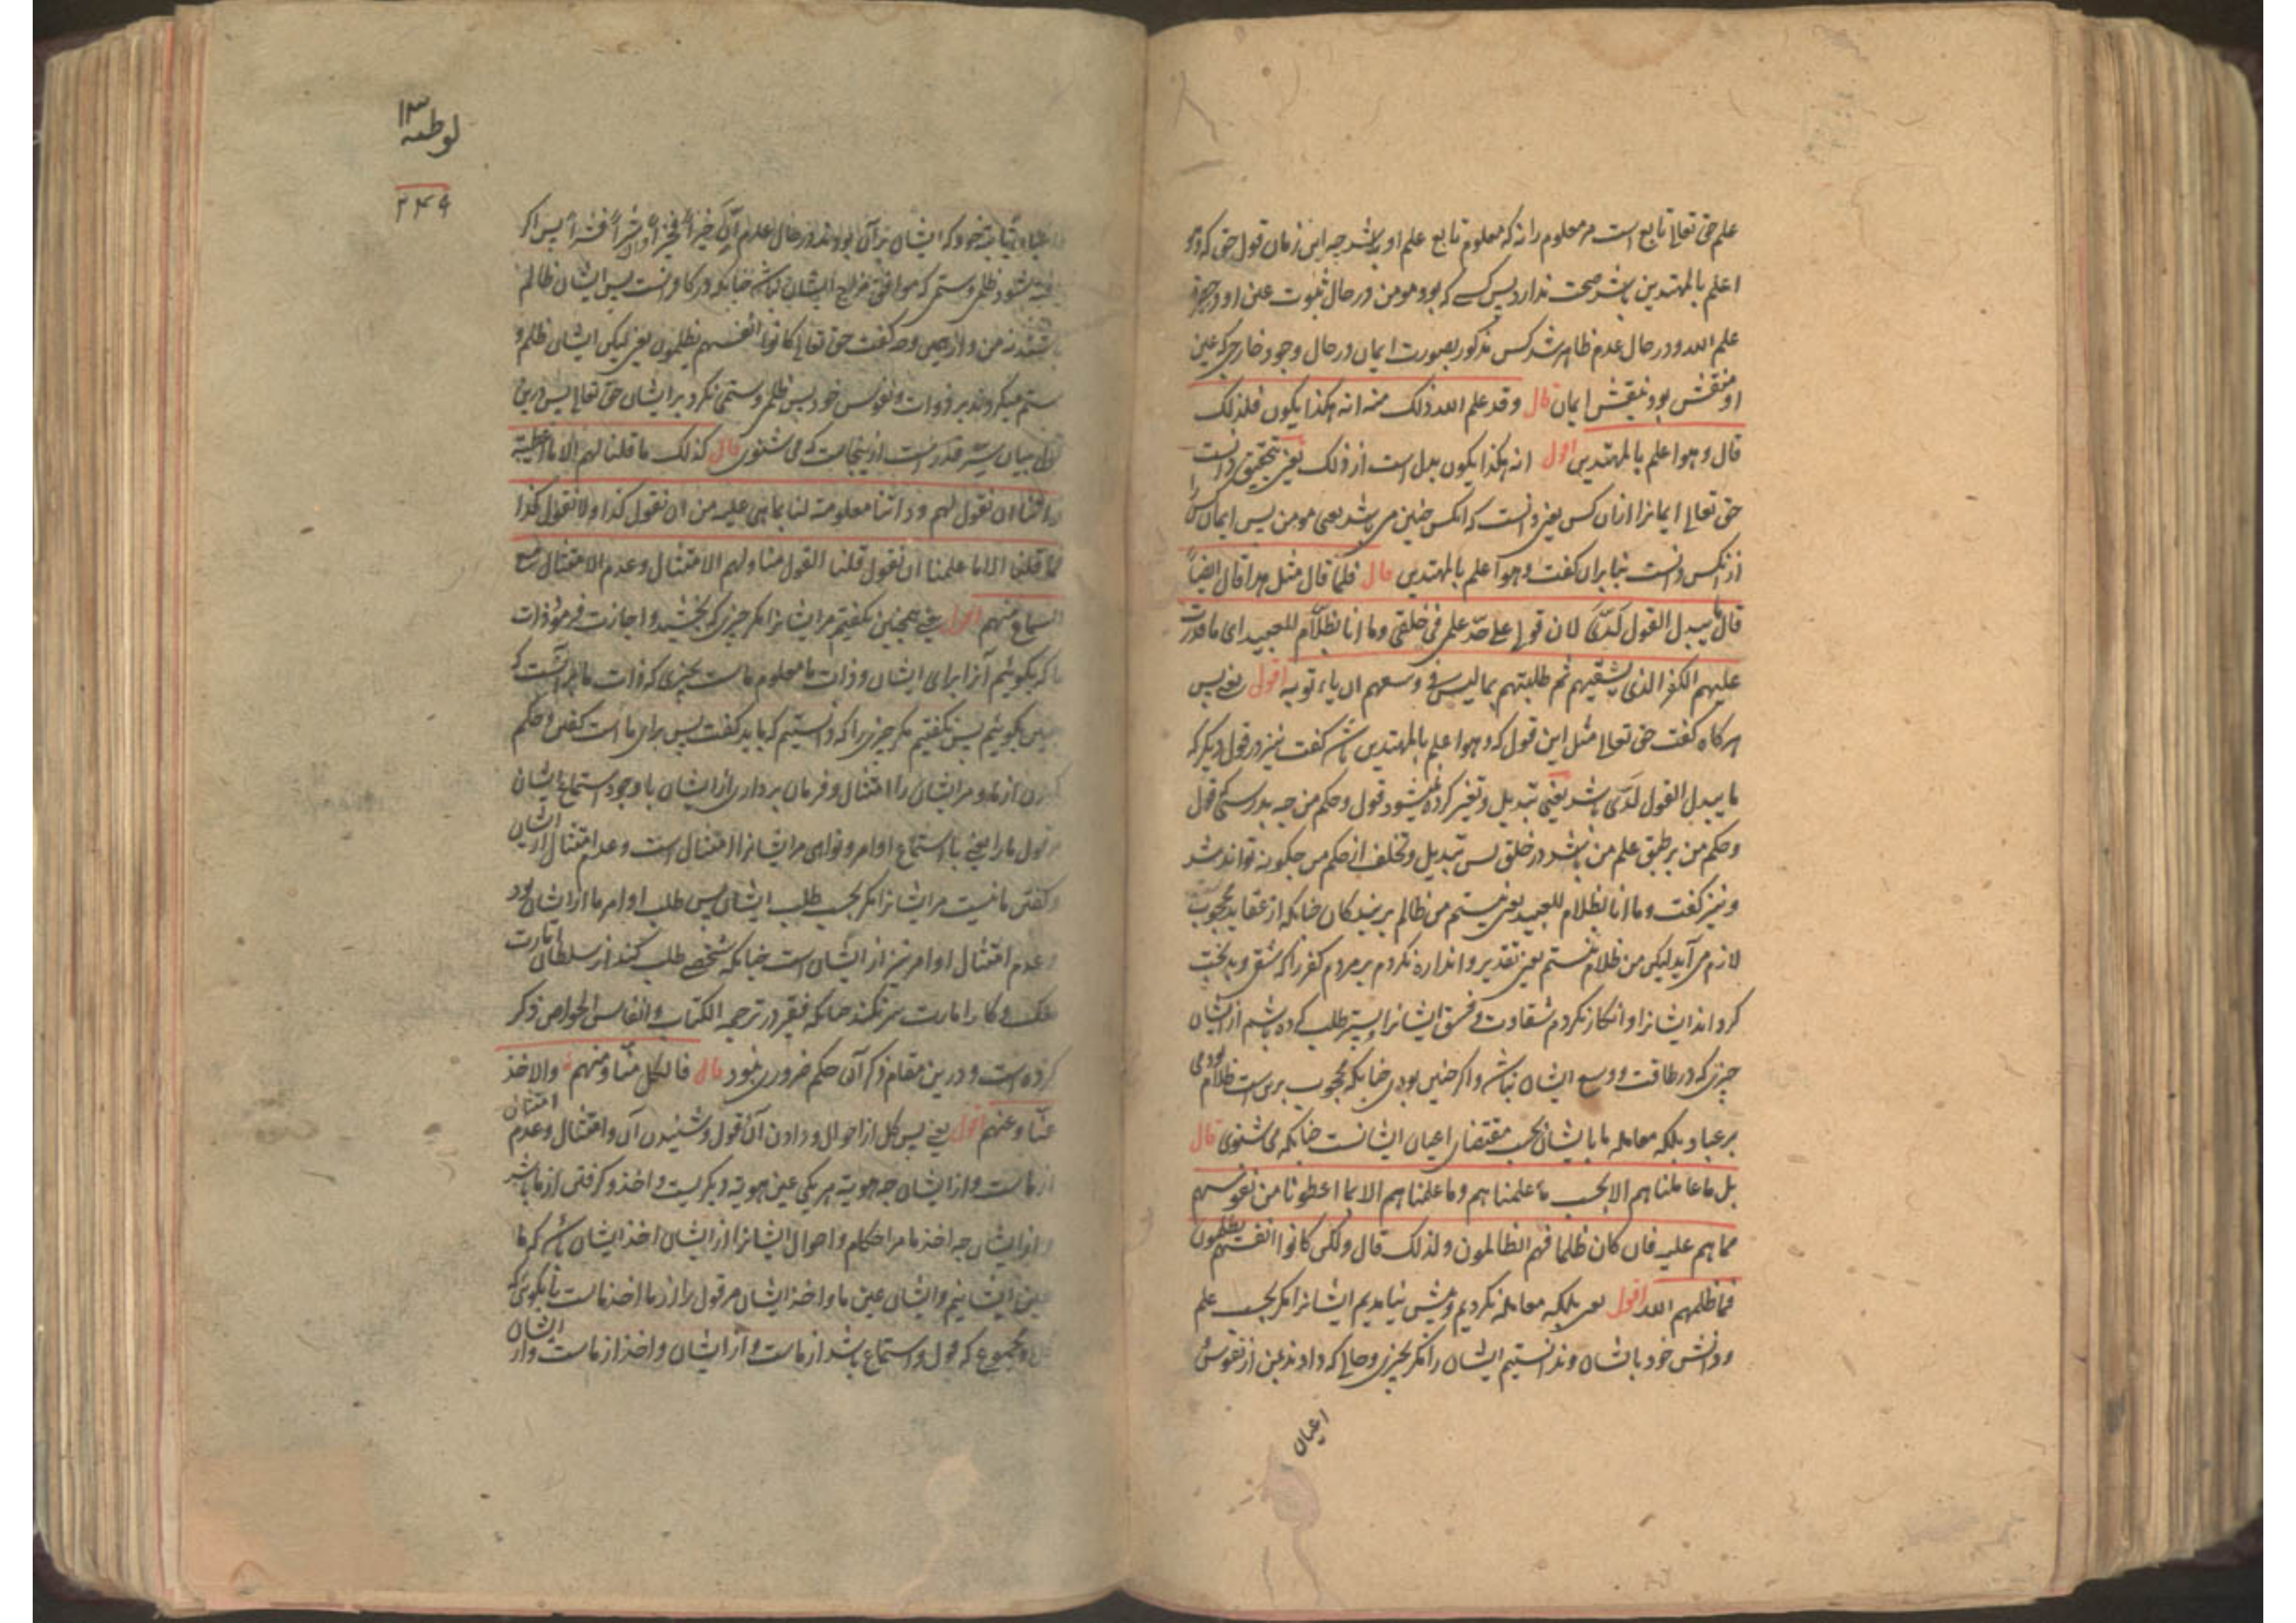 علم حق تعالی تابع است مر معلوم را نه که معلوم تابع علم او باشد چه این زمان قول حق که وهو
اعلم بالمهتدین باشد صحت ندارد پس کسے که بود مومن در حال ثبوت عین او در
علم الله و در حال عدم ظاهر شد کس مذکور بصورت ایمان در حال وجود خارجی که عین
او منقش بود بنقش ایمان قال وقد علم الله ذلک منه انه هکذا یکون فلذلک
قال وهو اعلم بالمهتدین اقول انه هکذا یکون بدل است از ذلک یعنی بتحقیق دانست
حق تعالی ایمانرا ازان کس یعنی دانست که انکس چنین می باشد یعنی مومن پس ایمان را
ازانکس دانست بنابران کفت وهو اعلم بالمهتدین قال فلما قال مثل هذا قال ایضاً
قال ما یبدل القول لدیّ لان قولی علی حدّ علمی فی خلقی وما انا بظلّام للعبید ای ما قدرت
علیهم الکفر الذی یشقیهم ثم طلبتهم بما لیس فی وسعهم ان یاتو به اقول یعنی پس
هرکاه کفت حق تعالی مثل این قول که وهو اعلم بالمهتدین باشد کفت نیز در قول دیکر که
ما یبدل القول لدیّ باشد یعنی تبدیل و تغیر کرده نمیشود قول و حکم من چه بدرستی قول
و حکم من بر طبق علم من باشد در خلق پس تبدیل و تخلف از حکم من چکونه تواند شد
و نیز کفت وما انا بظلام للعبید یعنی نیستم من ظالم بر بندکان چنانکه از عقاید محجوب
لازم می آید لیکن من ظلام نیستم یعنی تقدیر و اندازه نکردم بر مردم کفر را که شقی و بدبخت
کرداند ایشانرا و انکار نکردم شقاوت و فسق ایشانرا پستر طلب کرده باشم از ایشان
چیزی که در طاقت و وسع ایشان نباشد و اکر چنین بودی چنانکه محجوب برین است ظلام بودمی
بر عباد بلکه معامله ما با ایشان بحسب مقتضای اعیان ایشانست چنانکه می شنوی قال
بل ما عاملناهم الا بحسب ما علمناهم وما علمناهم الا بما اعطونا من نفوسهم
مما هم علیه فان کان ظلما فهم الظالمون ولذلک قال ولکن کانوا انفسهم یظلمون
فما ظلمهم الله اقول یعنی بلکه معامله نکردیم و پیش نیامدیم ایشانرا مکر بحسب علم
و دانش خود بایشان و ندانستیم ایشان را مکر بچیزی و حالی که دادند بمن از نفوس
اعیان
لوطیه ۱۳
۲۴۹
ثابته خود که ایشان بران بودند در حال عدم ان خیراً فخیراً و ان شراً فشراً پس اکر
شود ظلم و ستمی که موافق مزاج ایشان نباشد چنانکه در کافرانست پس ایشان ظالم
باشند نه من و ازهمین وجه کفت حق تعالی کانوا انفسهم یظلمون یعنی لیکن ایشان ظلم و
ستم میکردند بر ذوات و نفوس خود پس ظلم و ستمی نکرد بر ایشان حق تعالی پس درین
قول بیان سر قدر است ازینجاست که می شنوی قال کذلک ما قلنا لهم الا ما اعطیته
ذاتنا ان نقول لهم وذاتنا معلومة لنا بما هی علیه من ان نقول کذا ولا نقول کذا
فما قلنا الا ما علمنا ان نقول قلنا القول منا ولهم الامتثال وعدم الامتثال مع
السماع منهم اقول یعنی همچنین نکفتیم مر ایشانرا مکر چیزی که بخشید و اجازت فرمود ذات
ما که بکوئیم آنرا برای ایشان و ذات ما معلوم ماست بچیزی که ذات ما برانست که
چنین بکوئیم پس نکفتیم مکر چیزی را که دانستیم که باید کفت پس برای ما است کفتن و حکم
کردن از ما و مر ایشان را امتثال و فرمان برداری از ایشان با وجود استماع ایشان
قول ما را یعنی با استماع اوامر و نواهی مر ایشانرا امتثال است و عدم امتثال از ایشان
و کفتن ما نیست مر ایشانرا مکر بحسب طلب ایشان پس طلب اوامر ما از ایشان بود
و عدم امتثال اوامر نیز از ایشان است چنانکه شخصے طلب کند از سلطان امارت
ملک و کار امارت سر نکند چنانکه فقیر در ترجمه الکتاب و انفاس الخواص ذکر
کرده است و درین مقام ذکر آن حکم ضروری نبود قال فالکل منّا ومنهم والاخذ
عنّا وعنهم اقول یعنی پس کل از احوال و دادن آن قول و شنیدن آن و امتثال و عدم امتثال
از ماست و از ایشان چه هویة هر یکی عین هویة دیکریست و اخذ و کرفتن از ما باشد
و از ایشان چه اخذ ما مر احکام و احوال ایشانرا از ایشان اخذ ایشان باشد که ما
عین ایشانیم و ایشان عین ما و اخذ ایشان مر قول را از ما اخذ ماست یا بکوئی که
مجموع که قول و استماع باشد از ماست و از ایشان و اخذ از ماست و از ایشان